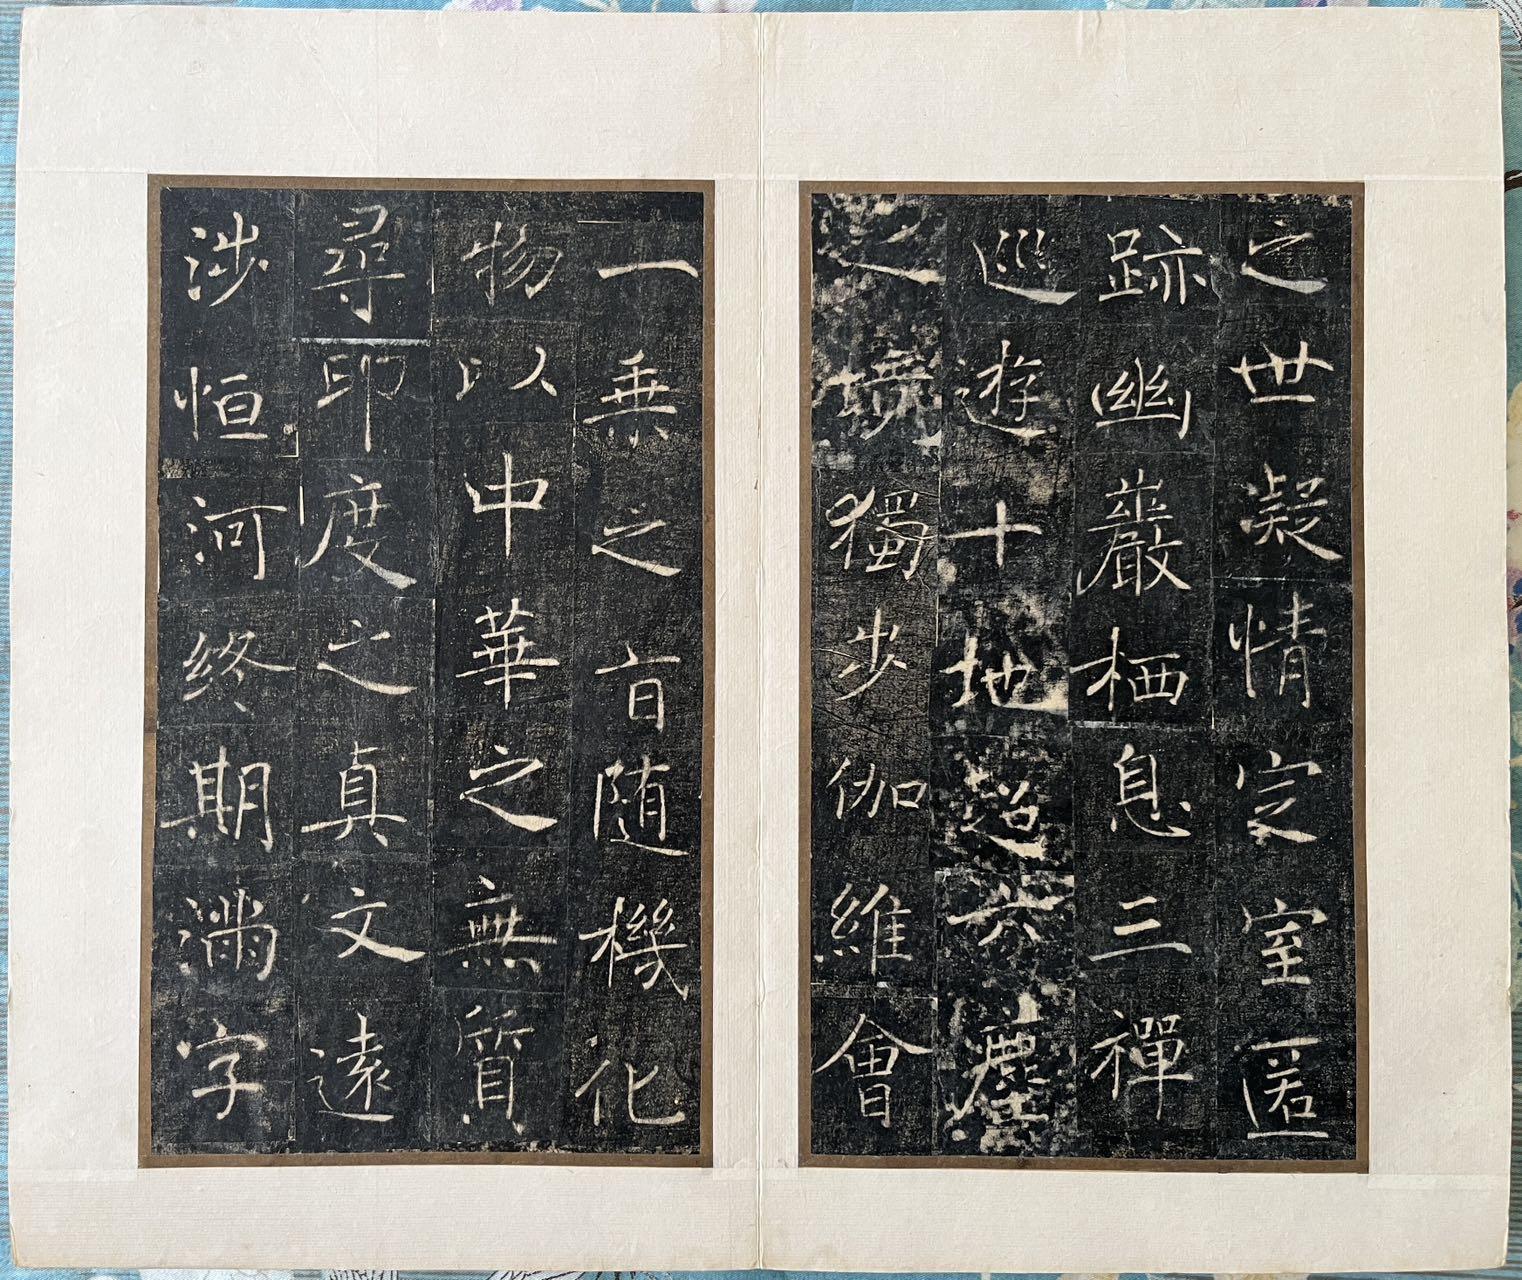 之世凝情定室匿
跡幽巖栖息三禪
巡遊十地超六塵
之境獨步伽維會
一乗之旨随機化
物以中華之無質
尋印度之真文遠
涉恒河終期滿字